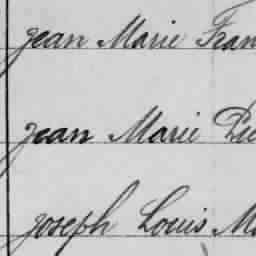 jean Marie Fran
jean Marie Pie
joseph Louis Ma